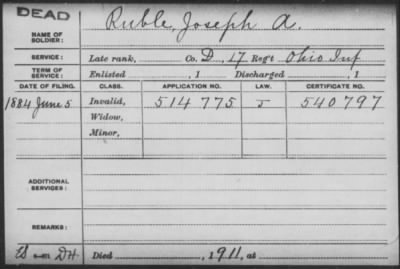 DEAD
NAME OF SOLDIER: Ruble, Joseph A.
SERVICE: Late rank, Co. D, 17 Reg't Ohio Inf
TERM OF SERVICE: Enlisted , 1 Discharged , 1
DATE OF FILING. CLASS. APPLICATION NO. LAW. CERTIFICATE NO.
1884 June 5 Invalid, 514775 J 540797
Widow,
Minor,
ADDITIONAL SERVICES:
REMARKS:
Died , 1911, at